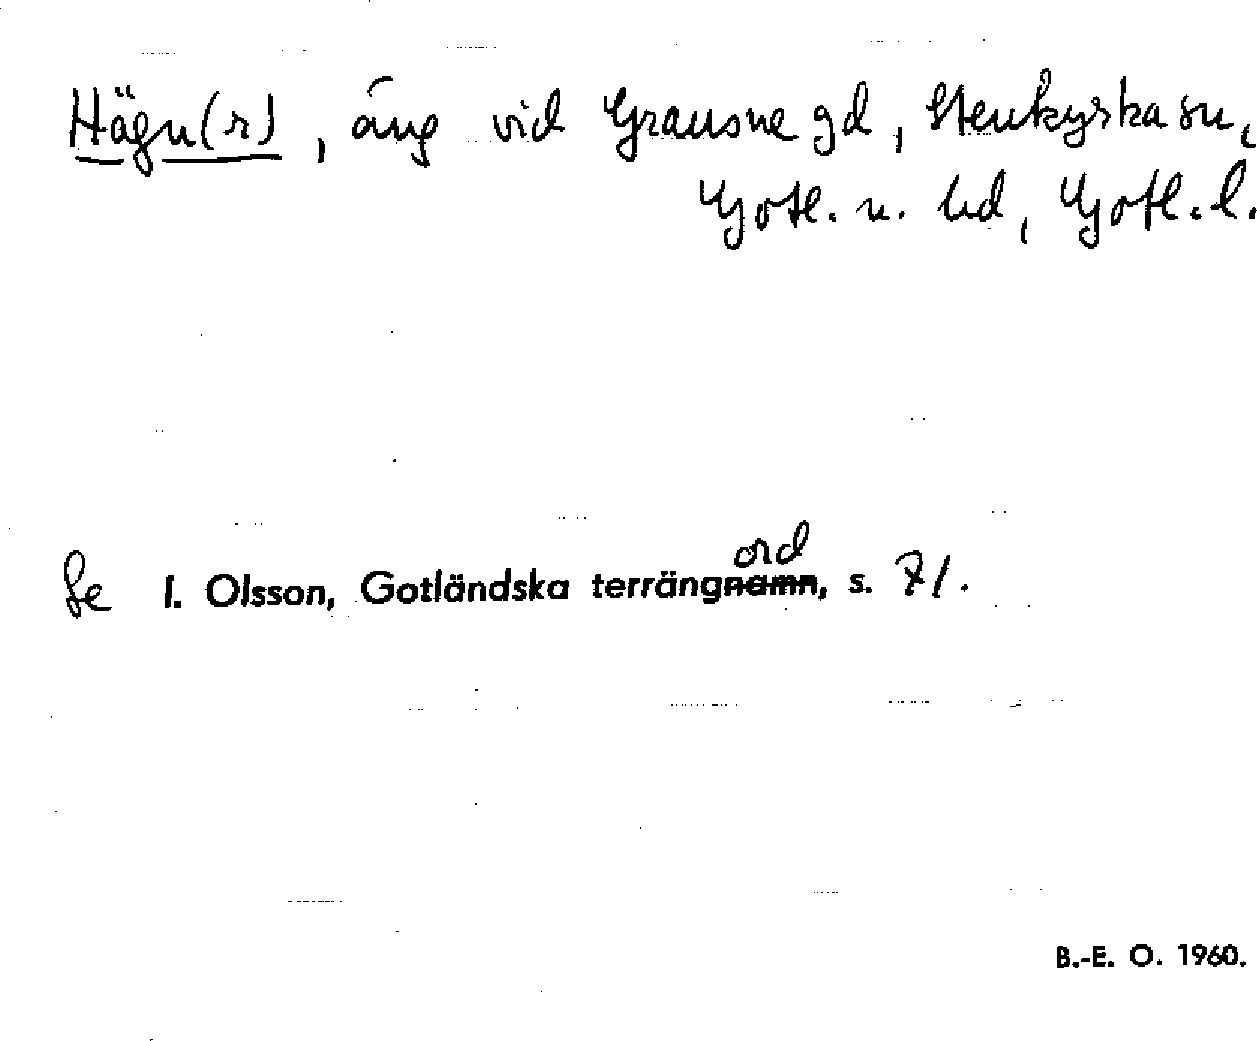 Hägn(r), äng vid Grausne gd, Stenkyrka sn,
Gotl. n. hd, Gotl. l.
ord
Se I. Olsson, Gotländska terrängnamn, s. 71.
B.-E. O. 1960.